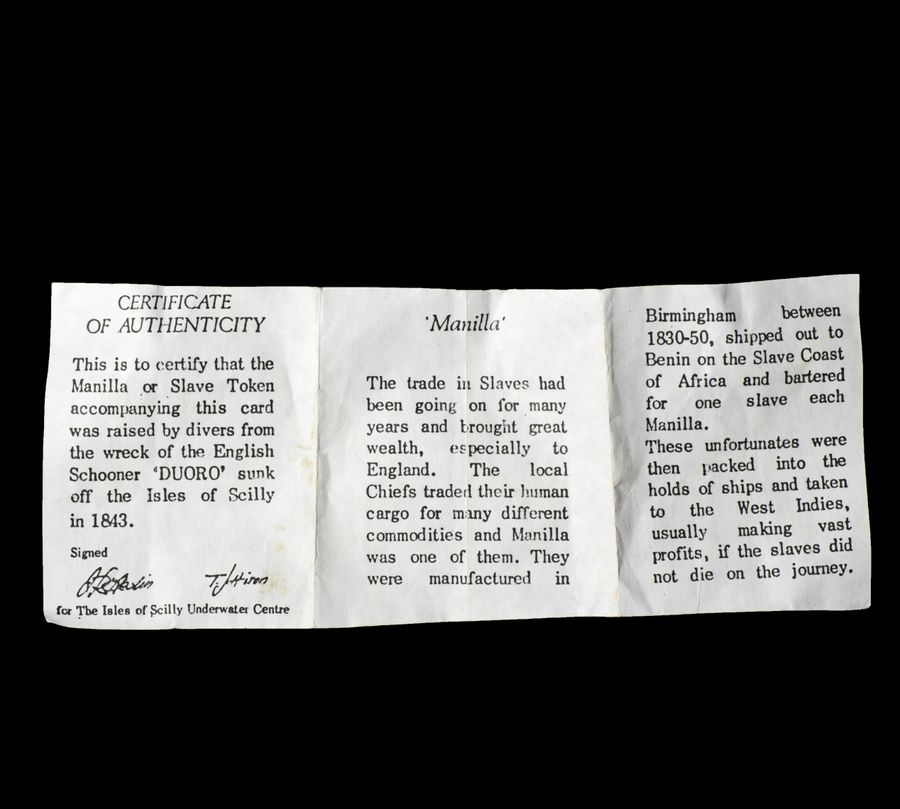 CERTIFICATE
OF AUTHENTICITY
This is to certify that the
Manilla or Slave Token
accompanying this card
was raised by divers from
the wreck of the English
Schooner 'DUORO' sunk
off the Isles of Scilly
in 1843.
Signed
for The Isles of Scilly Underwater Centre
'Manilla'
The trade in Slaves had
been going on for many
years and brought great
wealth, especially to
England. The local
Chiefs traded their human
cargo for many different
commodities and Manilla
was one of them. They
were manufactured in
Birmingham between
1830-50, shipped out to
Benin on the Slave Coast
of Africa and bartered
for one slave each
Manilla.
These unfortunates were
then packed into the
holds of ships and taken
to the West Indies,
usually making vast
profits, if the slaves did
not die on the journey.